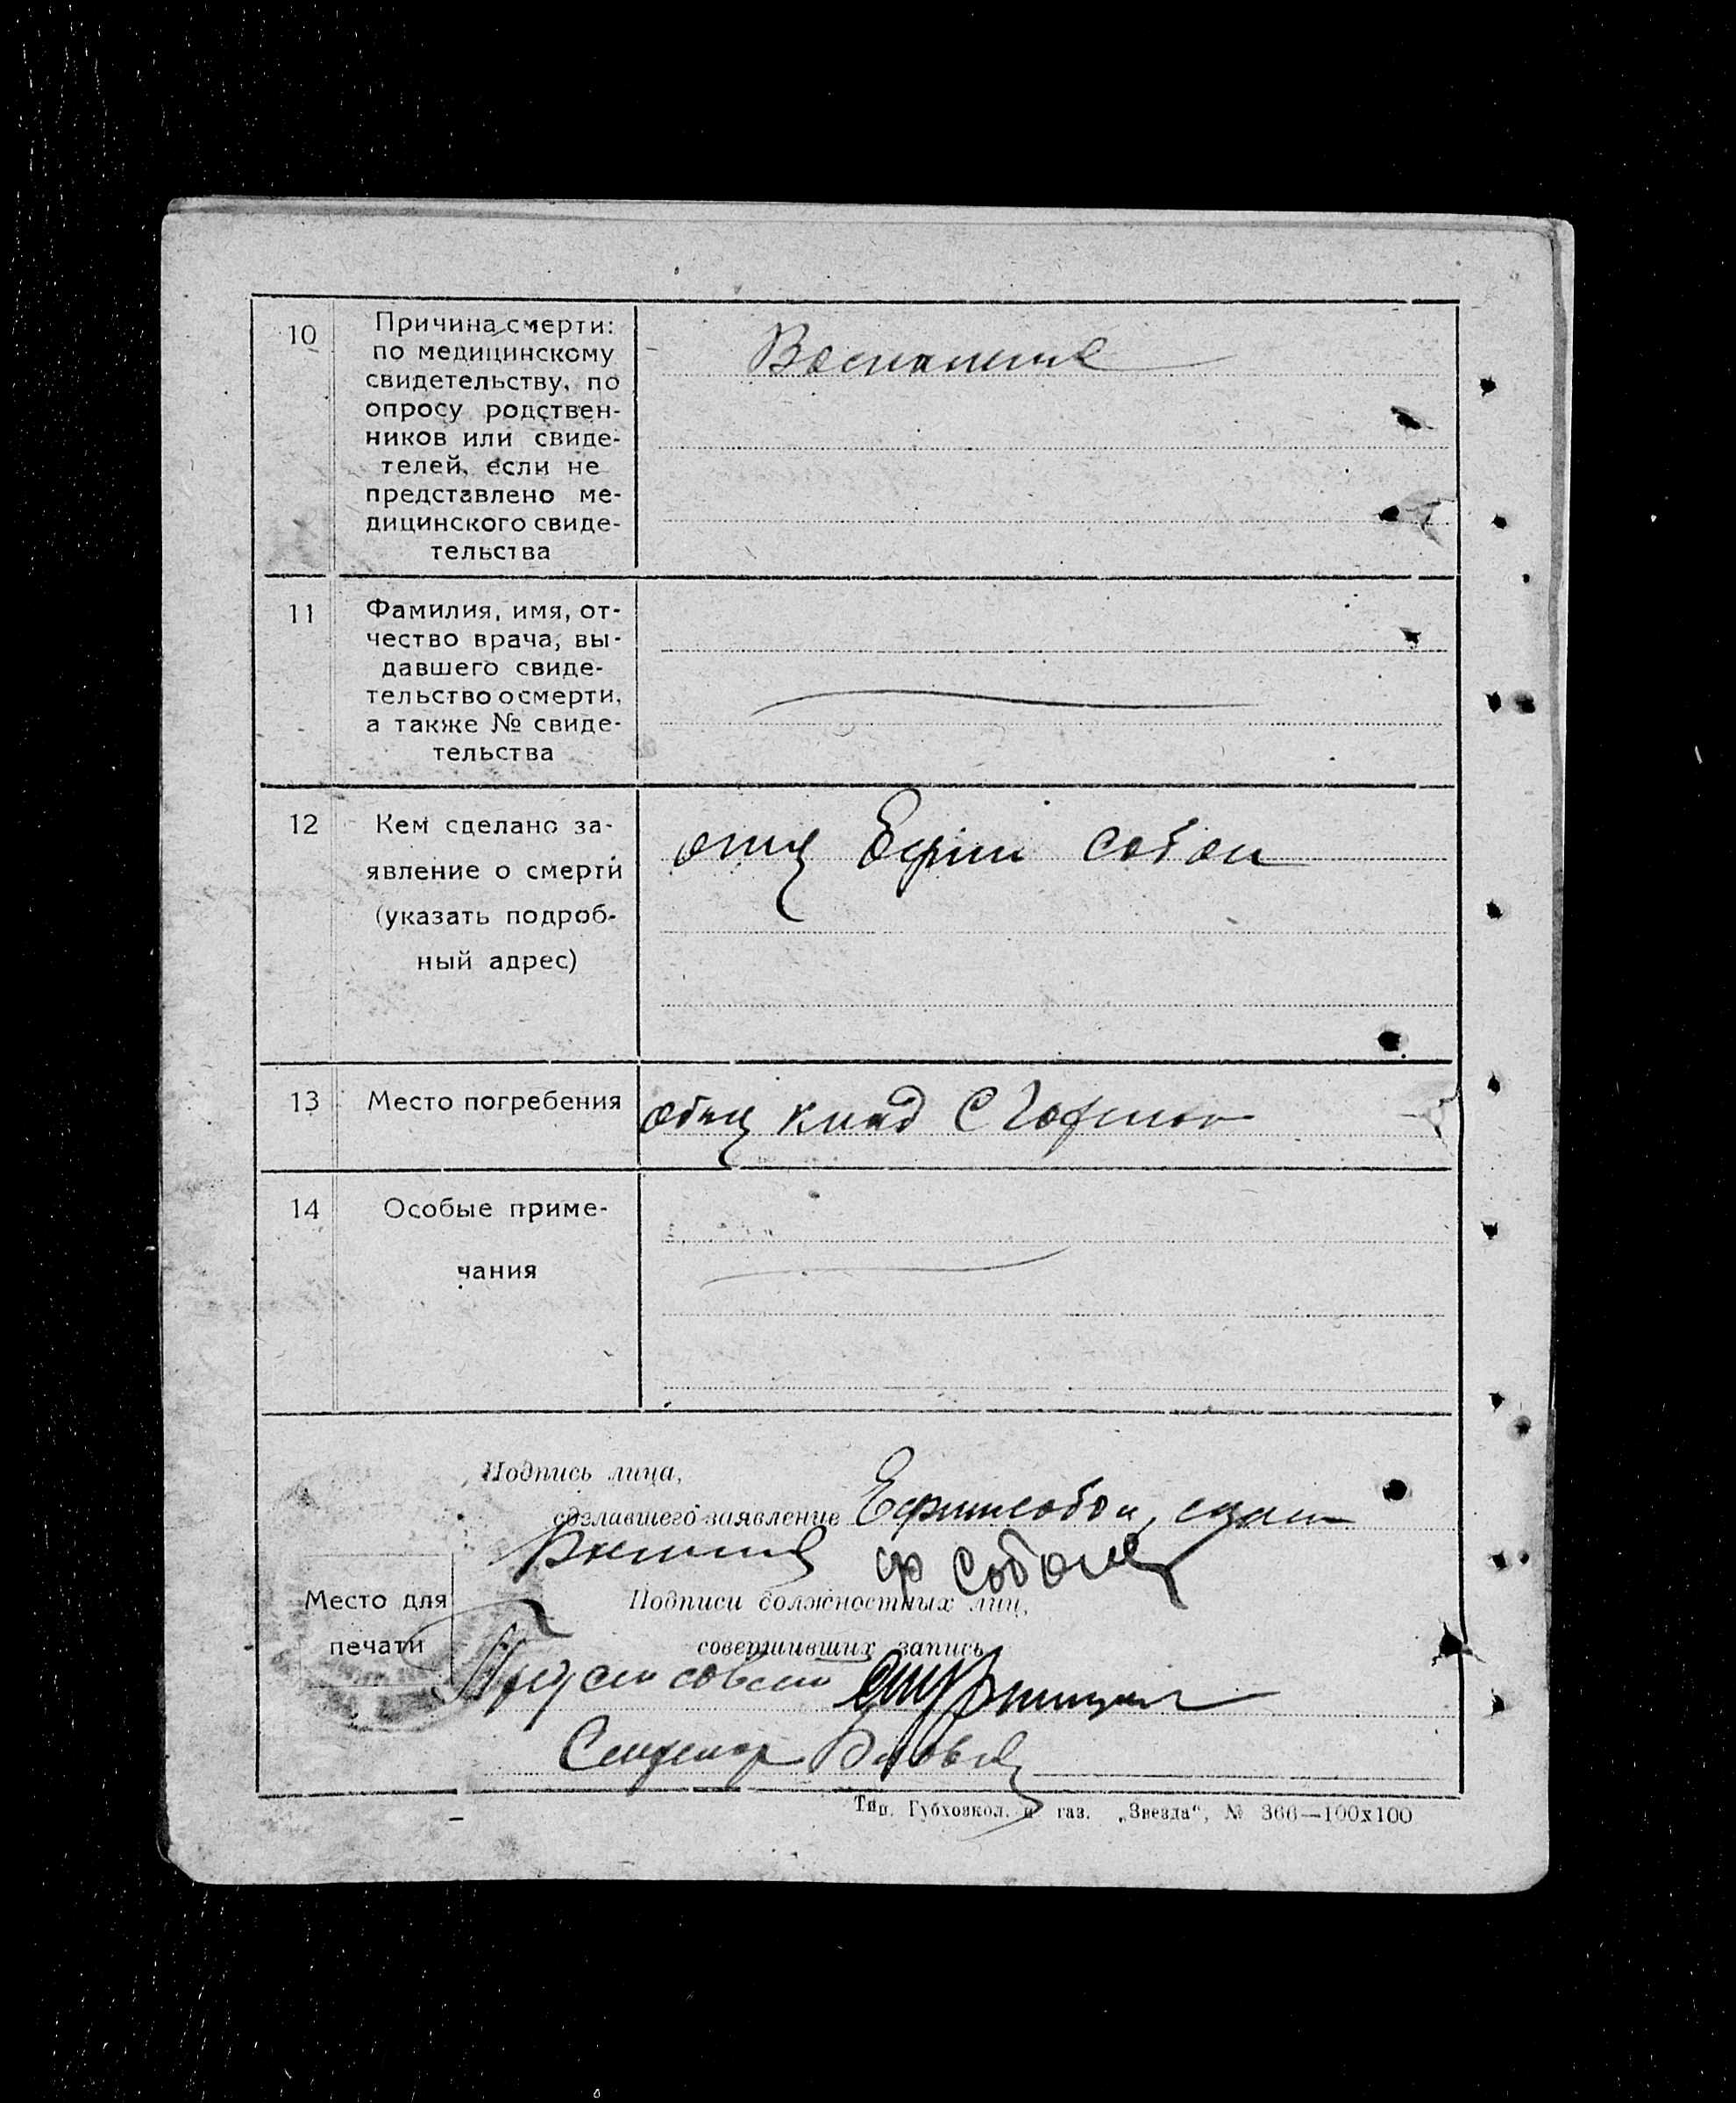 10
Причина смерти:
по медицинскому
свидетельству, по
опросу родствен-
ников или свиде-
телей, если не
представлено ме-
дицинского свиде-
тельства
Воспаление
11
Фамилия, имя, от-
чество врача, вы-
давшего свиде-
тельство о смерти,
а также № свиде-
тельства
12
Кем сделано за-
явление о смерти
(указать подроб-
ный адрес)
отец Ефим собол
13
Место погребения
общ клад С
14
Особые приме-
чания
Подпись лица,
сделавшего заявление Ефим собол,
соболь
Место для
печати
Подписи должностных лиц,
совершивших запись
Предсельсовета
Секретар
Тип. Губхозкол. и газ. „Звезда“, № 366—100х100